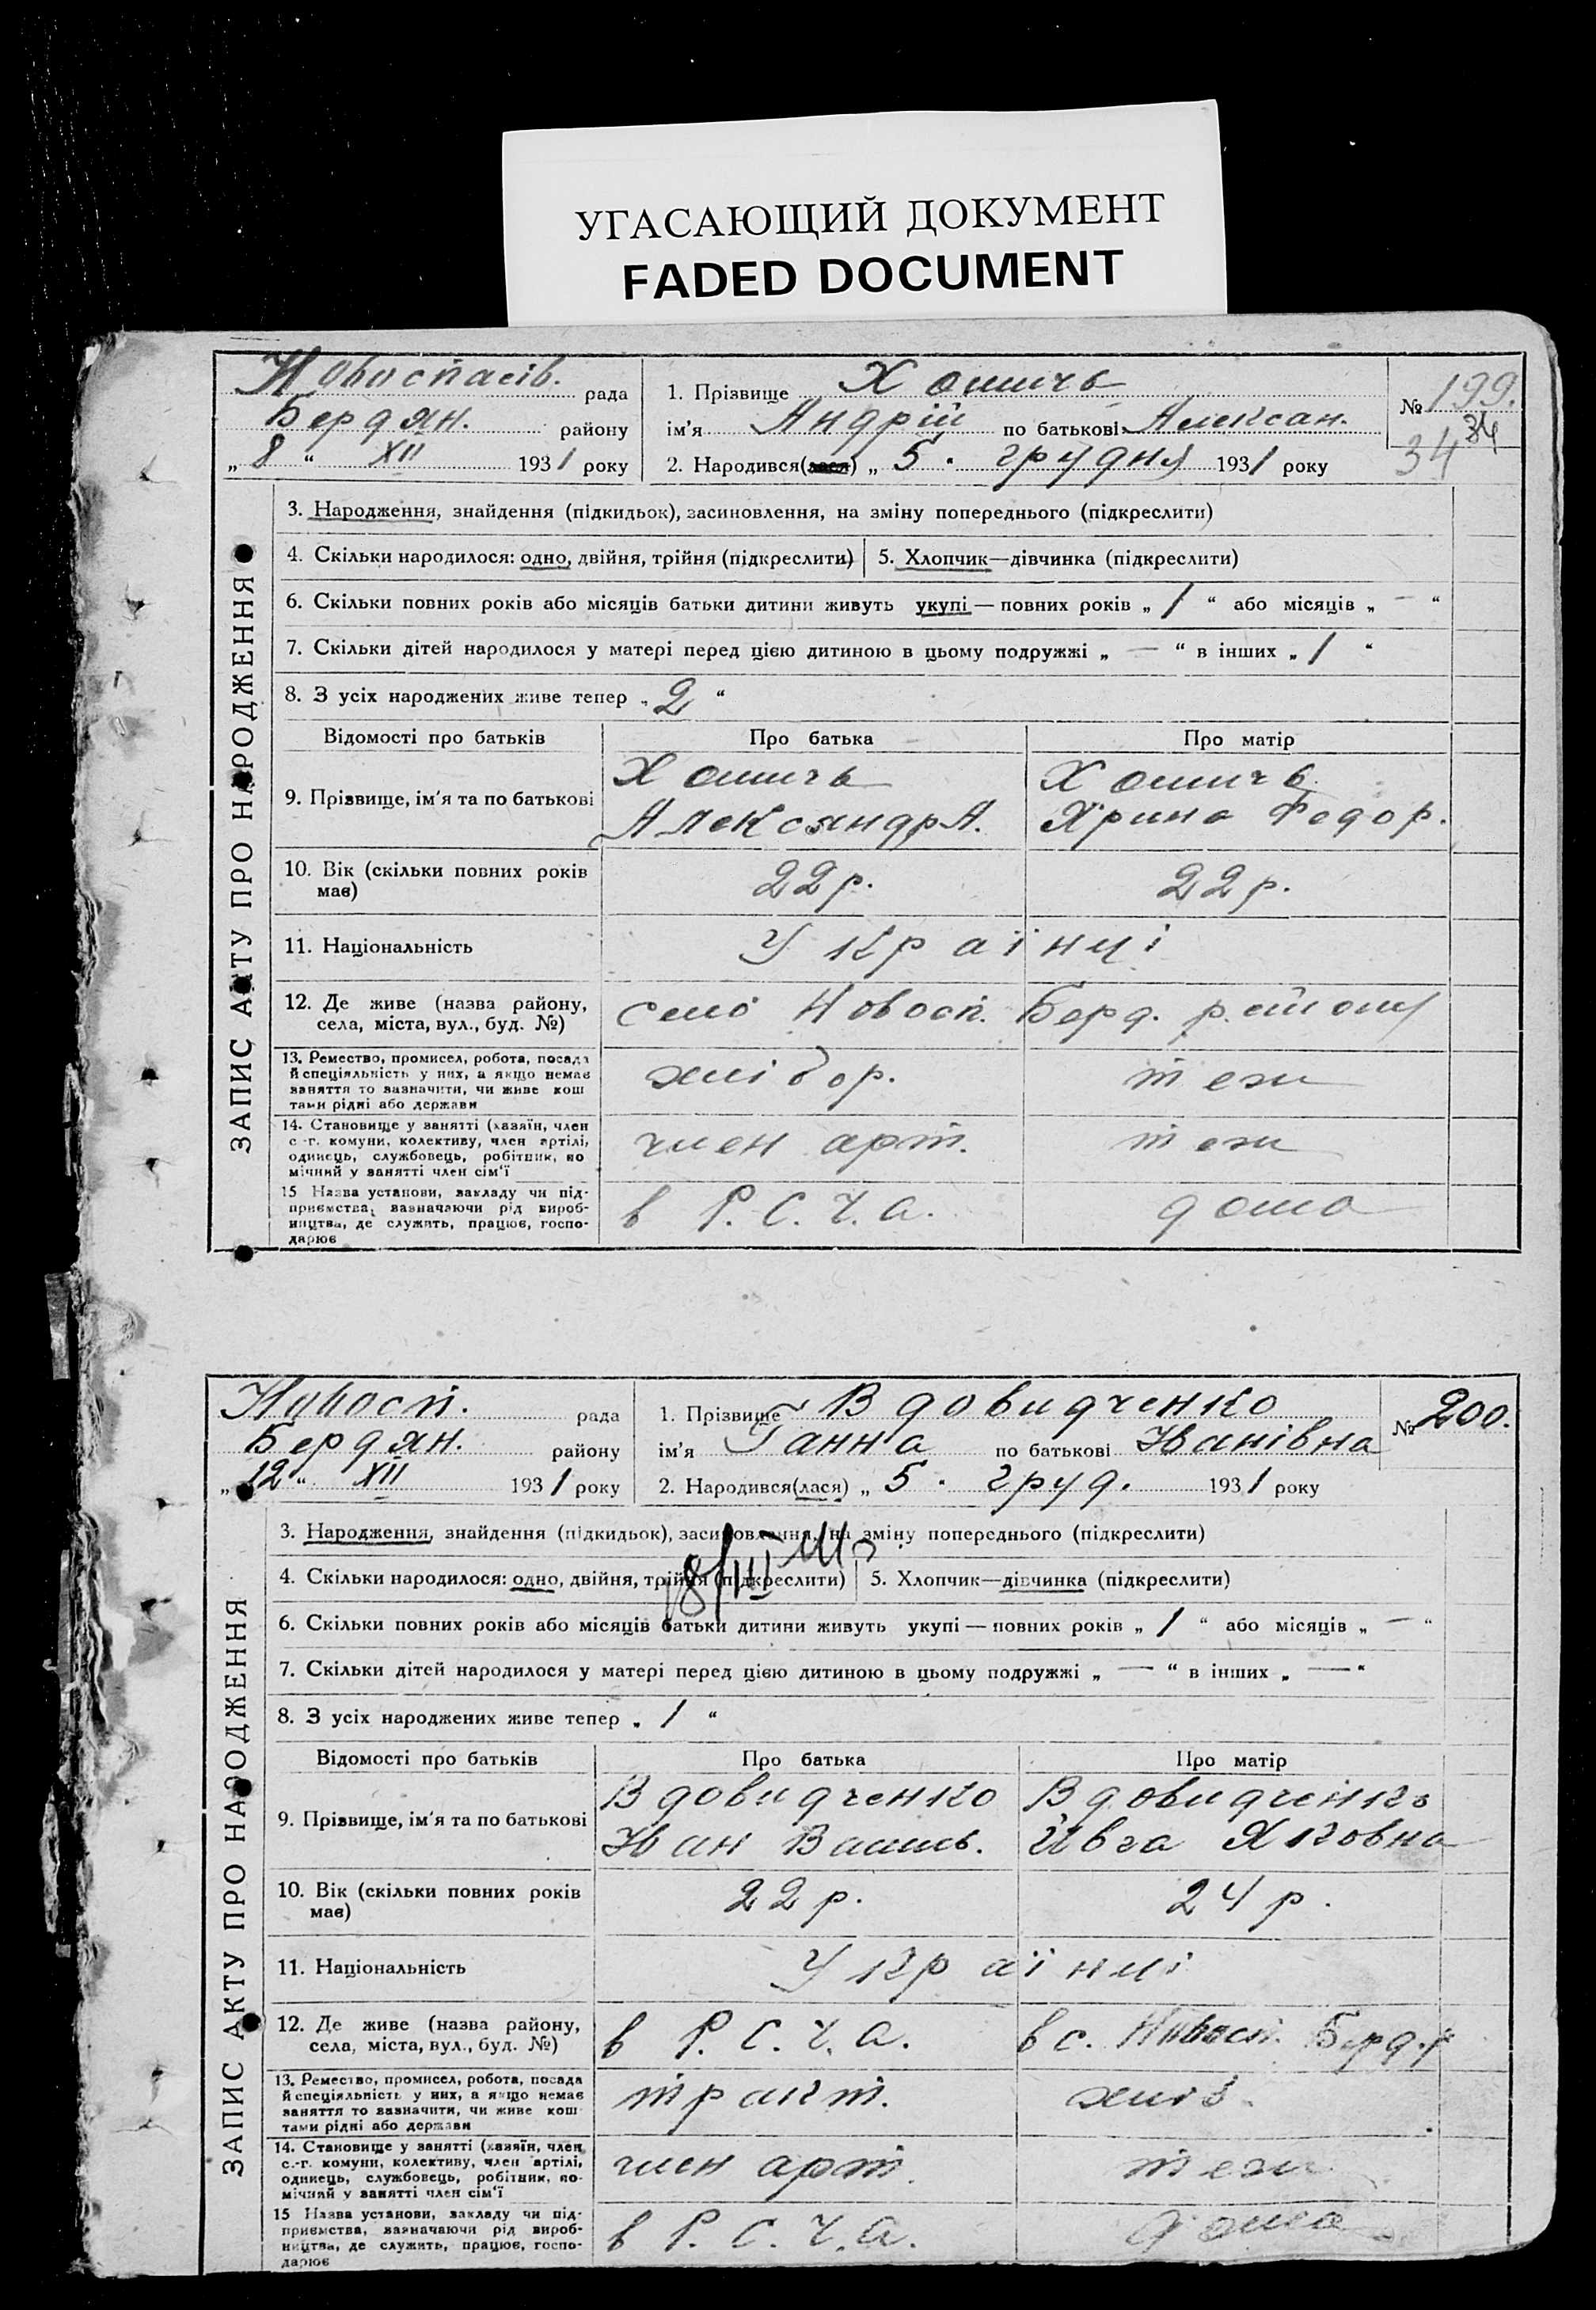 УГАСАЮЩИЙ ДОКУМЕНТ
FADED DOCUMENT
Новоспасів. рада
Бердян. району
„ 8 “ XII 1931 року
1. Прізвище Хомичь
ім'я Андрій по батькові Алексан.
2. Народився(лася) „ 5 . грудня 1931 року
№ 199.
34
34
ЗАПИС АКТУ ПРО НАРОДЖЕННЯ
3. Народження, знайдення (підкидьок), засиновлення, на зміну попереднього (підкреслити)
4. Скільки народилося: одно, двійня, трійня (підкреслити) 5. Хлопчик—дівчинка (підкреслити)
6. Скільки повних років або місяців батьки дитини живуть укупі — повних років „ 1 “ або місяців „ — “
7. Скільки дітей народилося у матері перед цією дитиною в цьому подружжі „ — “ в інших „ 1 “
8. З усіх народжених живе тепер „ 2 “
Відомості про батьків Про батька Про матір
9. Прізвище, ім'я та по батькові
Хомичь Хомичь
Александр А. Ярина Федор.
10. Вік (скільки повних років має) 22 р. 22 р.
11. Національність Українці
12. Де живе (назва району, села, міста, вул., буд. №) село Новосп. Берд. району
13. Ремество, промисел, робота, посада й спеціяльність у них, а якщо немає заняття то зазначити, чи живе коштами рідні або держави хлібор. теж
14. Становище у занятті (хазяїн, член с.-г. комуни, колективу, член артілі, одинець, службовець, робітник, помічний у занятті член сім'ї член арт. теж
15 Назва установи, закладу чи підприємства, зазначаючи рід виробництва, де служить, працює, господарює в Р. С. Ч. А. дома
Новосп. рада
Бердян. району
„ 12 “ XII 1931 року
1. Прізвище Вдовидченко
ім'я Ганна по батькові Іванівна
2. Народився(лася) „ 5 . груд. 1931 року
№ 200.
ЗАПИС АКТУ ПРО НАРОДЖЕННЯ
3. Народження, знайдення (підкидьок), засиновлення, на зміну попереднього (підкреслити)
4. Скільки народилося: одно, двійня, трійня (підкреслити) 5. Хлопчик—дівчинка (підкреслити)
18/III
6. Скільки повних років або місяців батьки дитини живуть укупі — повних років „ 1 “ або місяців „ — “
7. Скільки дітей народилося у матері перед цією дитиною в цьому подружжі „ — “ в інших „ — “
8. З усіх народжених живе тепер „ 1 “
Відомості про батьків Про батька Про матір
9. Прізвище, ім'я та по батькові
Вдовидченко Вдовидченко
Іван Василь. Ївга Яковна
10. Вік (скільки повних років має) 22 р. 24 р.
11. Національність Українці
12. Де живе (назва району, села, міста, вул., буд. №) в Р. С. Ч. А. в с. Новосп. Берд. р
13. Ремество, промисел, робота, посада й спеціяльність у них, а якщо немає заняття то зазначити, чи живе коштами рідні або держави тракт. хліб.
14. Становище у занятті (хазяїн, член с.-г. комуни, колективу, член артілі, одинець, службовець, робітник, помічний у занятті член сім'ї член арт. теж
15 Назва установи, закладу чи підприємства, зазначаючи рід виробництва, де служить, працює, господарює в Р. С. Ч. А. дома